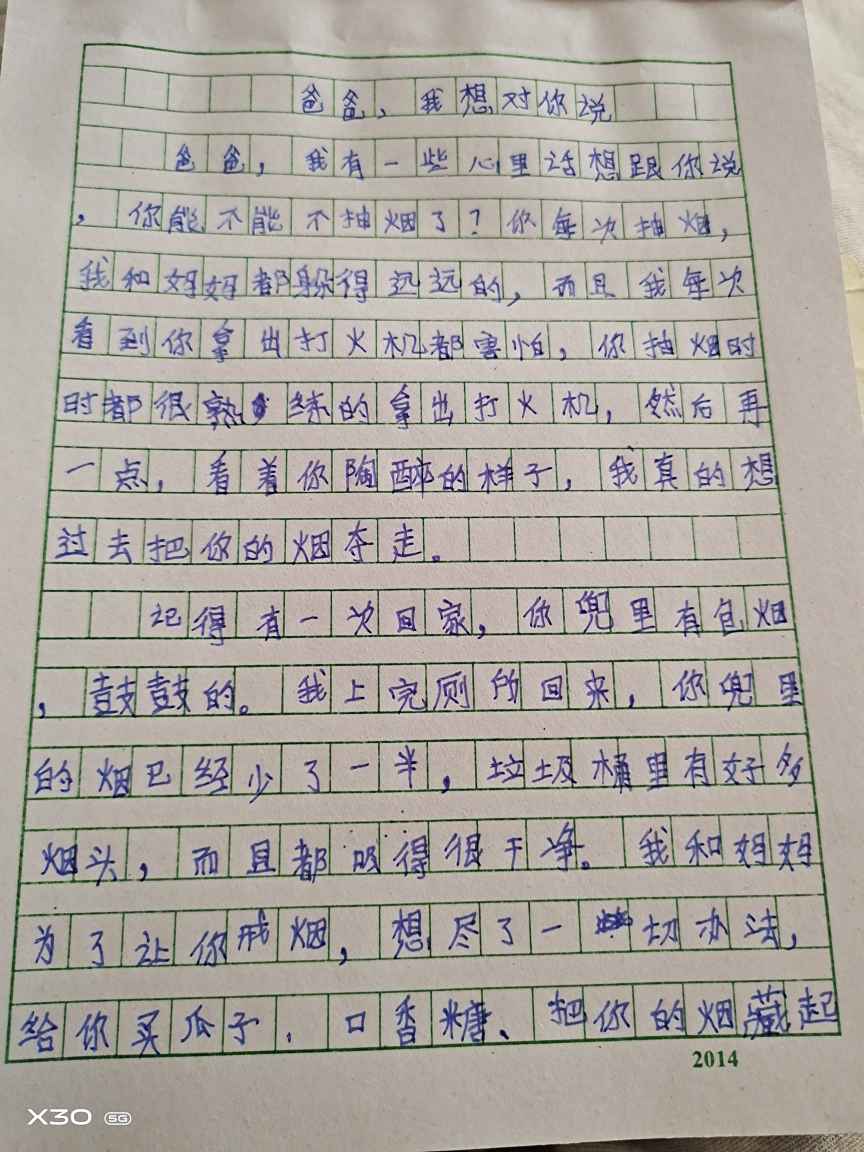 爸爸，我想对你说
爸爸，我有一些心里话想跟你说
，你能不能不抽烟了？你每次抽烟，
我和妈妈都躲得远远的，而且我每次
看到你拿出打火机都害怕，你抽烟时
时都很熟练的拿出打火机，然后再
一点，看着你陶醉的样子，我真的想
过去把你的烟夺走。
记得有一次回家，你兜里有包烟
，鼓鼓的。我上完厕所回来，你兜里
的烟已经少了一半，垃圾桶里有好多
烟头，而且都吸得很干净。我和妈妈
为了让你戒烟，想尽了一切办法，
给你买瓜子、口香糖、把你的烟藏起
2014
X30 5G